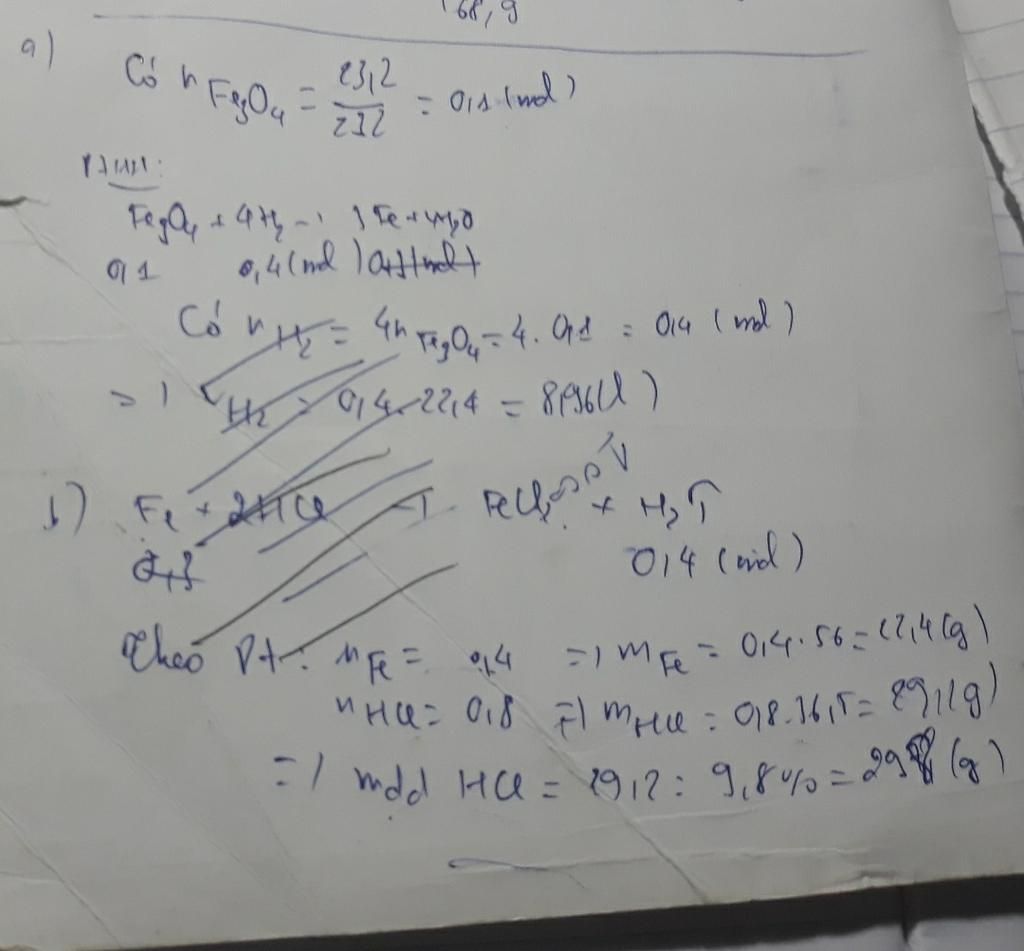 168,9
a)
Có n Fe3O4 = 23,2/232 = 0,1 (mol)
PTHH:
Fe3O4 + 4H2 → 3Fe + 4H2O
0,1 0,4 (mol)
Có n H2 = 4n Fe3O4 = 4. 0,1 = 0,4 (mol)
=> V H2 = 0,4. 22,4 = 8,96(l)
b) Fe + 2HCl → FeCl2 + H2↑
0,4 (mol)
Theo Pt: n Fe = 0,4 => m Fe = 0,4. 56 = 22,4(g)
n HCl = 0,8 => m HCl = 0,8. 36,5 = 29,2(g)
=> mdd HCl = 29,2 : 9,8% = 298 (g)